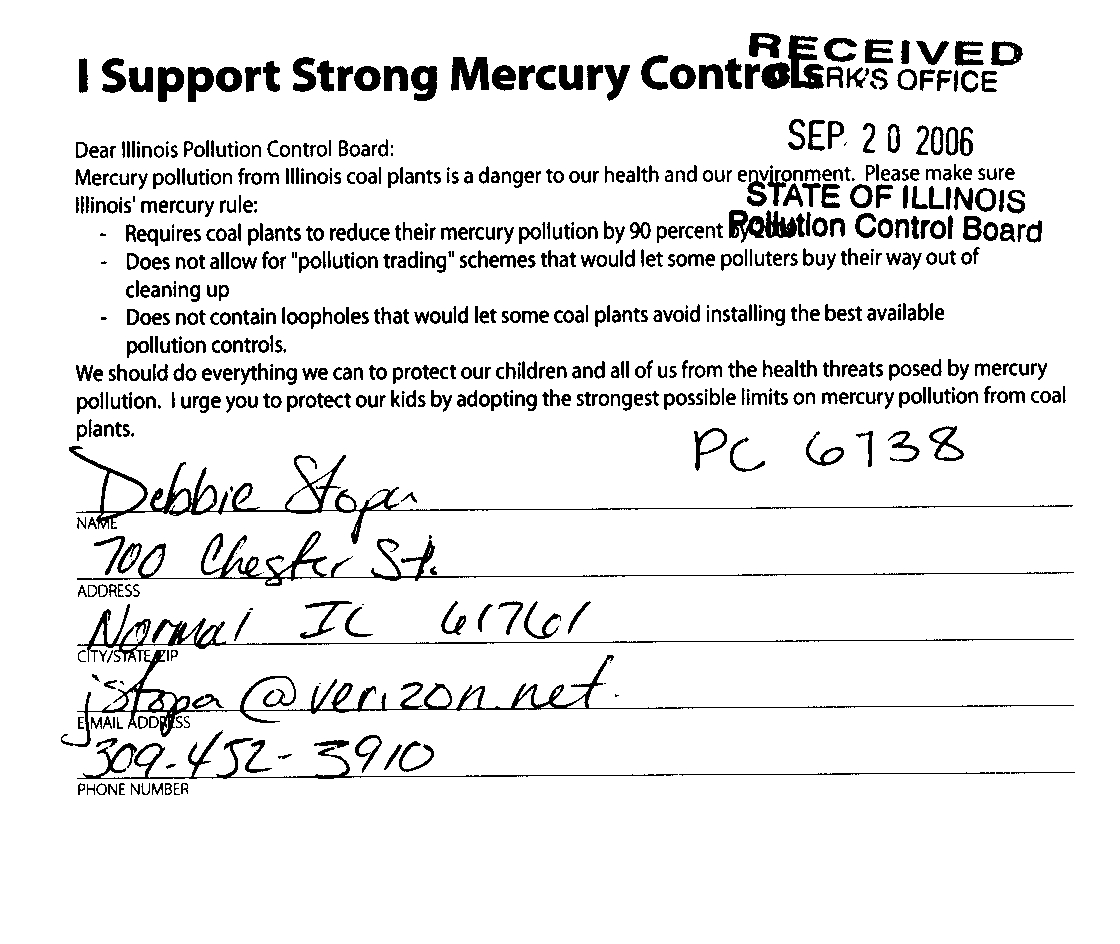 I Support Strong Mercury Controls
RECEIVED
CLERK'S OFFICE
SEP. 20 2006
STATE OF ILLINOIS
Pollution Control Board
Dear Illinois Pollution Control Board:
Mercury pollution from Illinois coal plants is a danger to our health and our environment. Please make sure
Illinois' mercury rule:
- Requires coal plants to reduce their mercury pollution by 90 percent by
- Does not allow for "pollution trading" schemes that would let some polluters buy their way out of
cleaning up
- Does not contain loopholes that would let some coal plants avoid installing the best available
pollution controls.
We should do everything we can to protect our children and all of us from the health threats posed by mercury
pollution. I urge you to protect our kids by adopting the strongest possible limits on mercury pollution from coal
plants.
PC 6738
Debbie Stopa
NAME
700 Chester St.
ADDRESS
Normal IL 61761
CITY/STATE/ZIP
jstopa@verizon.net
E-MAIL ADDRESS
309-452-3910
PHONE NUMBER